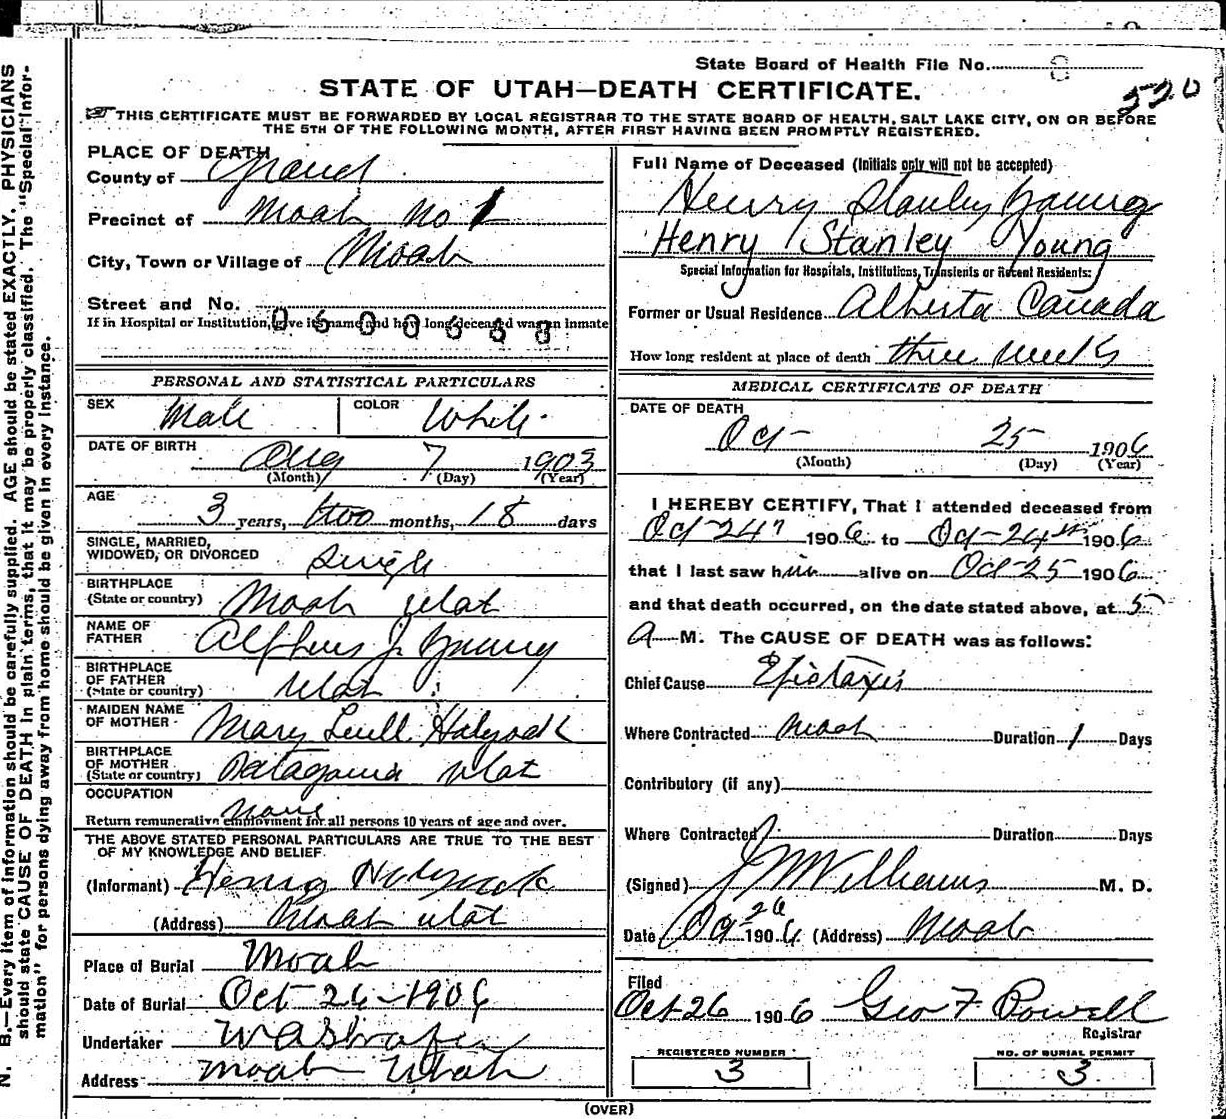 State Board of Health File No. 8
520
STATE OF UTAH—DEATH CERTIFICATE.
THIS CERTIFICATE MUST BE FORWARDED BY LOCAL REGISTRAR TO THE STATE BOARD OF HEALTH, SALT LAKE CITY, ON OR BEFORE
THE 5TH OF THE FOLLOWING MONTH, AFTER FIRST HAVING BEEN PROMPTLY REGISTERED.
PLACE OF DEATH
County of Grand
Precinct of Moab No 1
City, Town or Village of Moab
Street and No.
If in Hospital or Institution, give its name and how long deceased was an inmate
0600668
PERSONAL AND STATISTICAL PARTICULARS
SEX Male COLOR White
DATE OF BIRTH Aug 7 1903
(Month) (Day) (Year)
AGE 3 years, two months, 18 days
SINGLE, MARRIED,
WIDOWED, OR DIVORCED Single
BIRTHPLACE
(State or country) Moab Utah
NAME OF
FATHER Alpheus J. Young
BIRTHPLACE
OF FATHER
(State or country) Utah
MAIDEN NAME
OF MOTHER Mary Luell Holyoak
BIRTHPLACE
OF MOTHER
(State or country) Utah
OCCUPATION None
Return remunerative employment for all persons 10 years of age and over.
THE ABOVE STATED PERSONAL PARTICULARS ARE TRUE TO THE BEST
OF MY KNOWLEDGE AND BELIEF.
(Informant) Henry Holyoak
(Address) Moab Utah
Place of Burial Moab
Date of Burial Oct 26-1906
Undertaker
Address Moab Utah
Full Name of Deceased (Initials only will not be accepted)
Henry Stanley Young
Henry Stanley Young
Special Information for Hospitals, Institutions, Transients or Recent Residents:
Former or Usual Residence Alberta Canada
How long resident at place of death three weeks
MEDICAL CERTIFICATE OF DEATH
DATE OF DEATH
Oct- 25 1906
(Month) (Day) (Year)
I HEREBY CERTIFY, That I attended deceased from
Oct-24 1906 to Oct-24th 1906
that I last saw him alive on Oct-25 1906
and that death occurred, on the date stated above, at 5
A M. The CAUSE OF DEATH was as follows:
Chief Cause Epistaxis
Where Contracted Moab Duration 1 Days
Contributory (if any)
Where Contracted Duration Days
(Signed) J W Williams M. D.
Date Oct 26 1906 (Address) Moab
Filed
Oct-26 1906 Geo F Powell
Registrar
REGISTERED NUMBER
3
NO. OF BURIAL PERMIT
3
(OVER)
N. B.—Every item of information should be carefully supplied. AGE should be stated EXACTLY. PHYSICIANS
should state CAUSE OF DEATH in plain terms, that it may be properly classified. The "Special Infor-
mation" for persons dying away from home should be given in every instance.